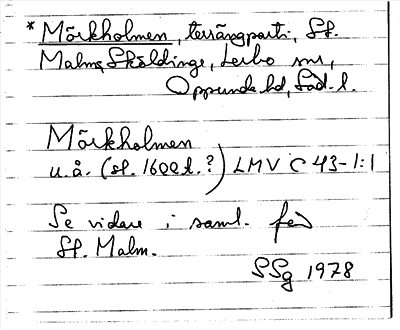 * Mörkholmen, terrängparti, St.
Malms, Sköldinge, Lerbo snr,
Oppunda hd, Söd. l.
Mörkholmen
u.å. (sl. 1600 t. ?) LMV C 43-1:1
Se vidare i saml. från
St. Malm.
SSg 1978